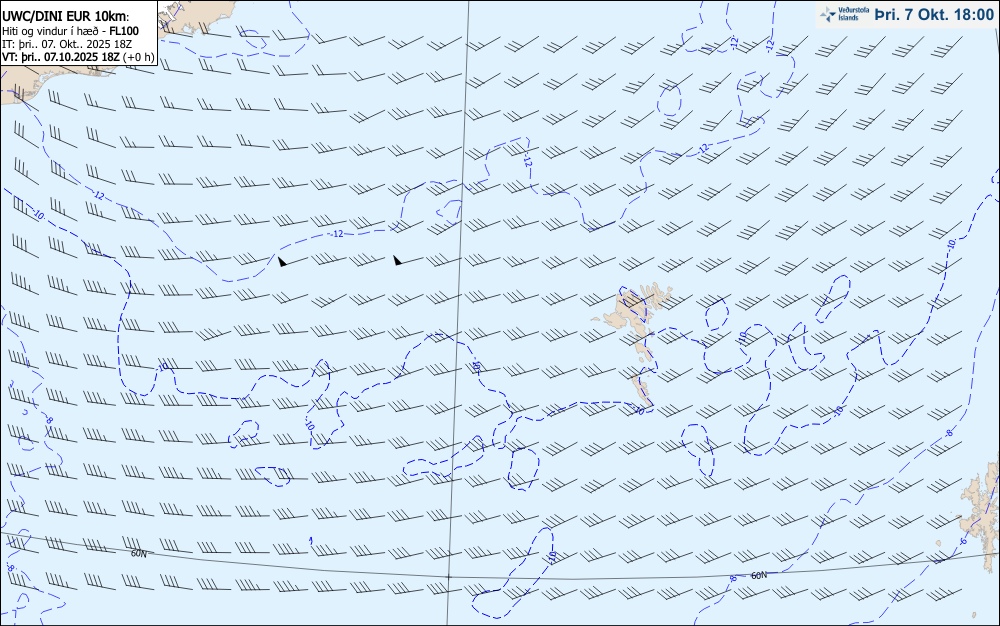 UWC/DINI EUR 10km:
Hiti og vindur í hæð - FL100
IT: þri.. 07. Okt.. 2025 18Z
VT: þri.. 07.10.2025 18Z (+0 h)
Veðurstofa Íslands
Þri. 7 Okt. 18:00
-12
-12
-12
-12
-12
-12
-10
-10
-10
-10
-10
-10
-10
-10
-10
-8
-8
-8
-8
-8
-6
60N
60N